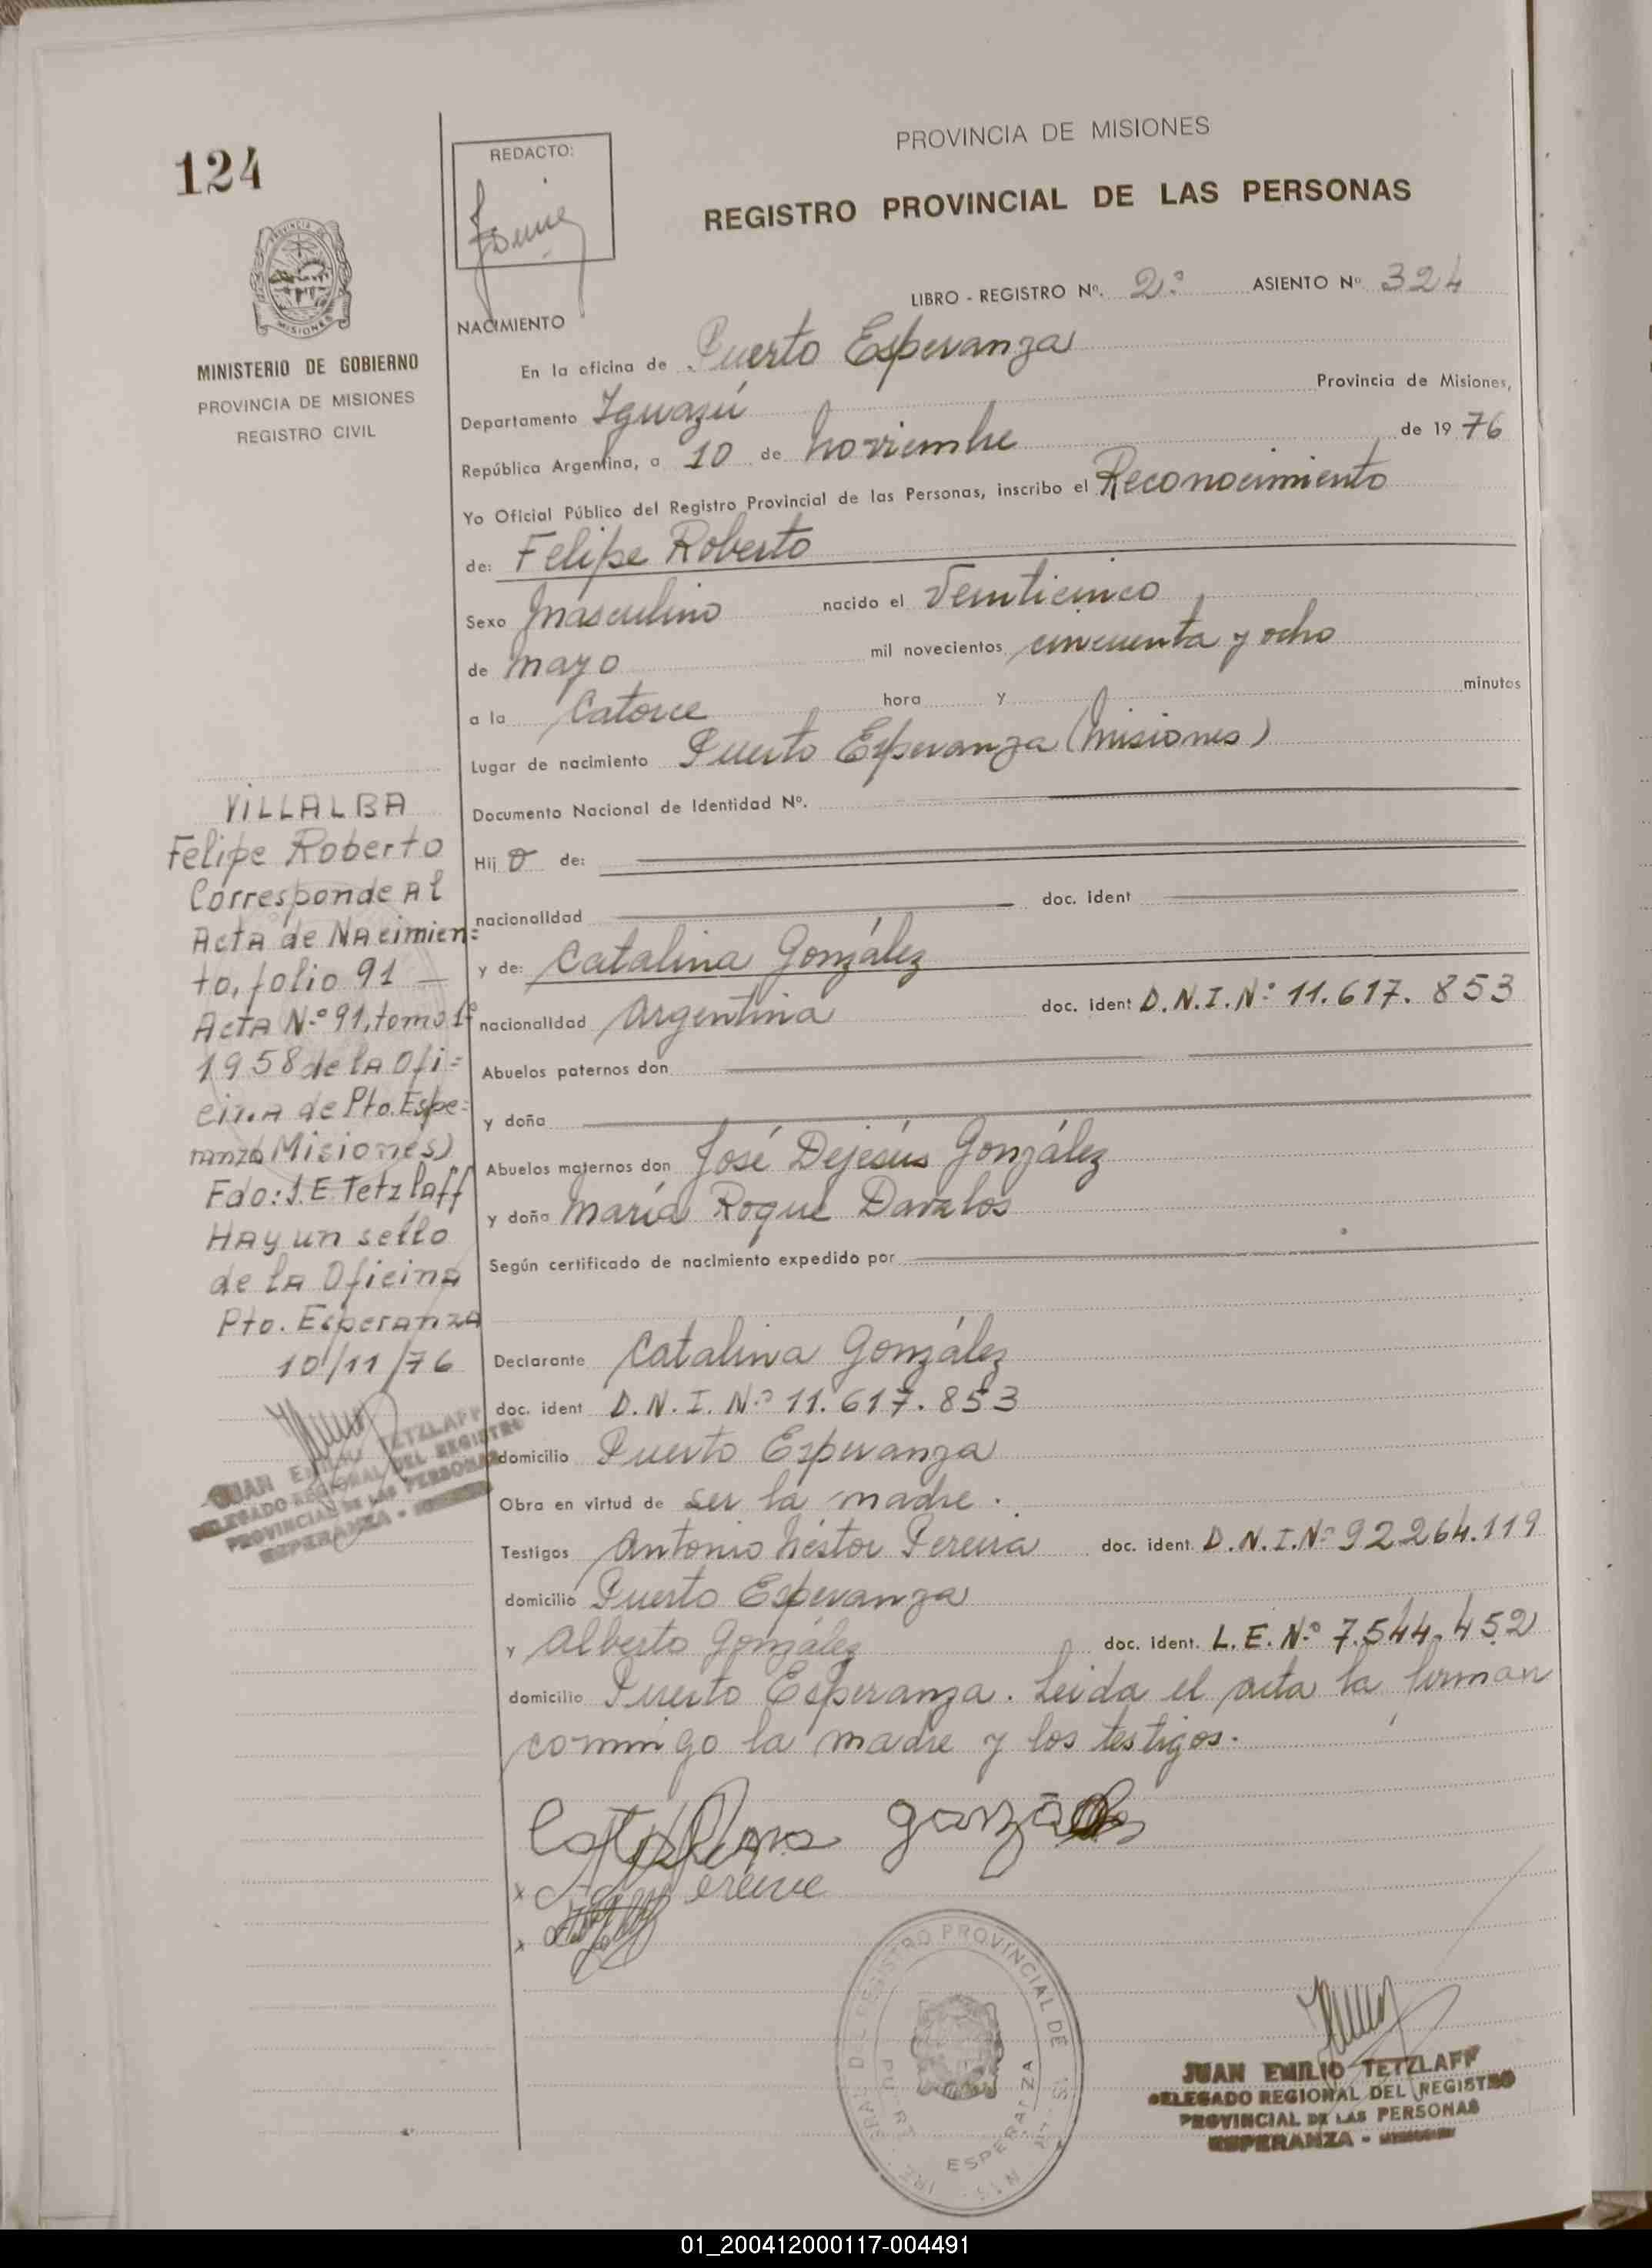 124
REDACTO:
PROVINCIA DE MISIONES
REGISTRO PROVINCIAL DE LAS PERSONAS
LIBRO - REGISTRO Nº. 2º ASIENTO Nº 324
MINISTERIO DE GOBIERNO
PROVINCIA DE MISIONES
REGISTRO CIVIL
NACIMIENTO
En la oficina de Puerto Esperanza
Departamento Iguazú Provincia de Misiones,
República Argentina, a 10 de noviembre de 19 76
Yo Oficial Público del Registro Provincial de las Personas, inscribo el Reconocimiento
de: Felipe Roberto
Sexo masculino nacido el Veinticinco
de mayo mil novecientos cincuenta y ocho
a la Catorce hora y minutos
Lugar de nacimiento Puerto Esperanza (Misiones)
Documento Nacional de Identidad Nº.
Hij o de:
nacionalidad doc. ident
y de: Catalina González
nacionalidad Argentina doc. ident D.N.I.Nº 11.617.853
Abuelos paternos don
y doña
Abuelos maternos don José Dejesús González
y doña María Roque Davalos
Según certificado de nacimiento expedido por
Declarante Catalina González
doc. ident D.N.I. Nº 11.617.853
domicilio Puerto Esperanza
Obra en virtud de ser la madre.
Testigos Antonio Néstor Pereira doc. ident. D.N.I.Nº 92264.119
domicilio Puerto Esperanza
y Alberto González doc. ident. L.E. Nº 7.544.452
domicilio Puerto Esperanza. Leida el acta la firman
commigo la madre y los testigos.
VILLALBA
Felipe Roberto
Corresponde Al
Acta de Nacimien=
to, folio 91
Acta N.º 91, tomo 1º
1958 de la Ofi=
cina de Pto. Espe=
ranza Misiones)
Fdo: J.E Tetzlaff
Hay un sello
de la Oficina
Pto. Esperanza
10/11/76
JUAN EMILIO TETZLAFF
DELEGADO REGIONAL DEL REGISTRO
PROVINCIAL DE LAS PERSONAS
ESPERANZA -
Catalina González
JUAN EMILIO TETZLAFF
DELEGADO REGIONAL DEL REGISTRO
PROVINCIAL DE LAS PERSONAS
ESPERANZA -
01_200412000117-004491